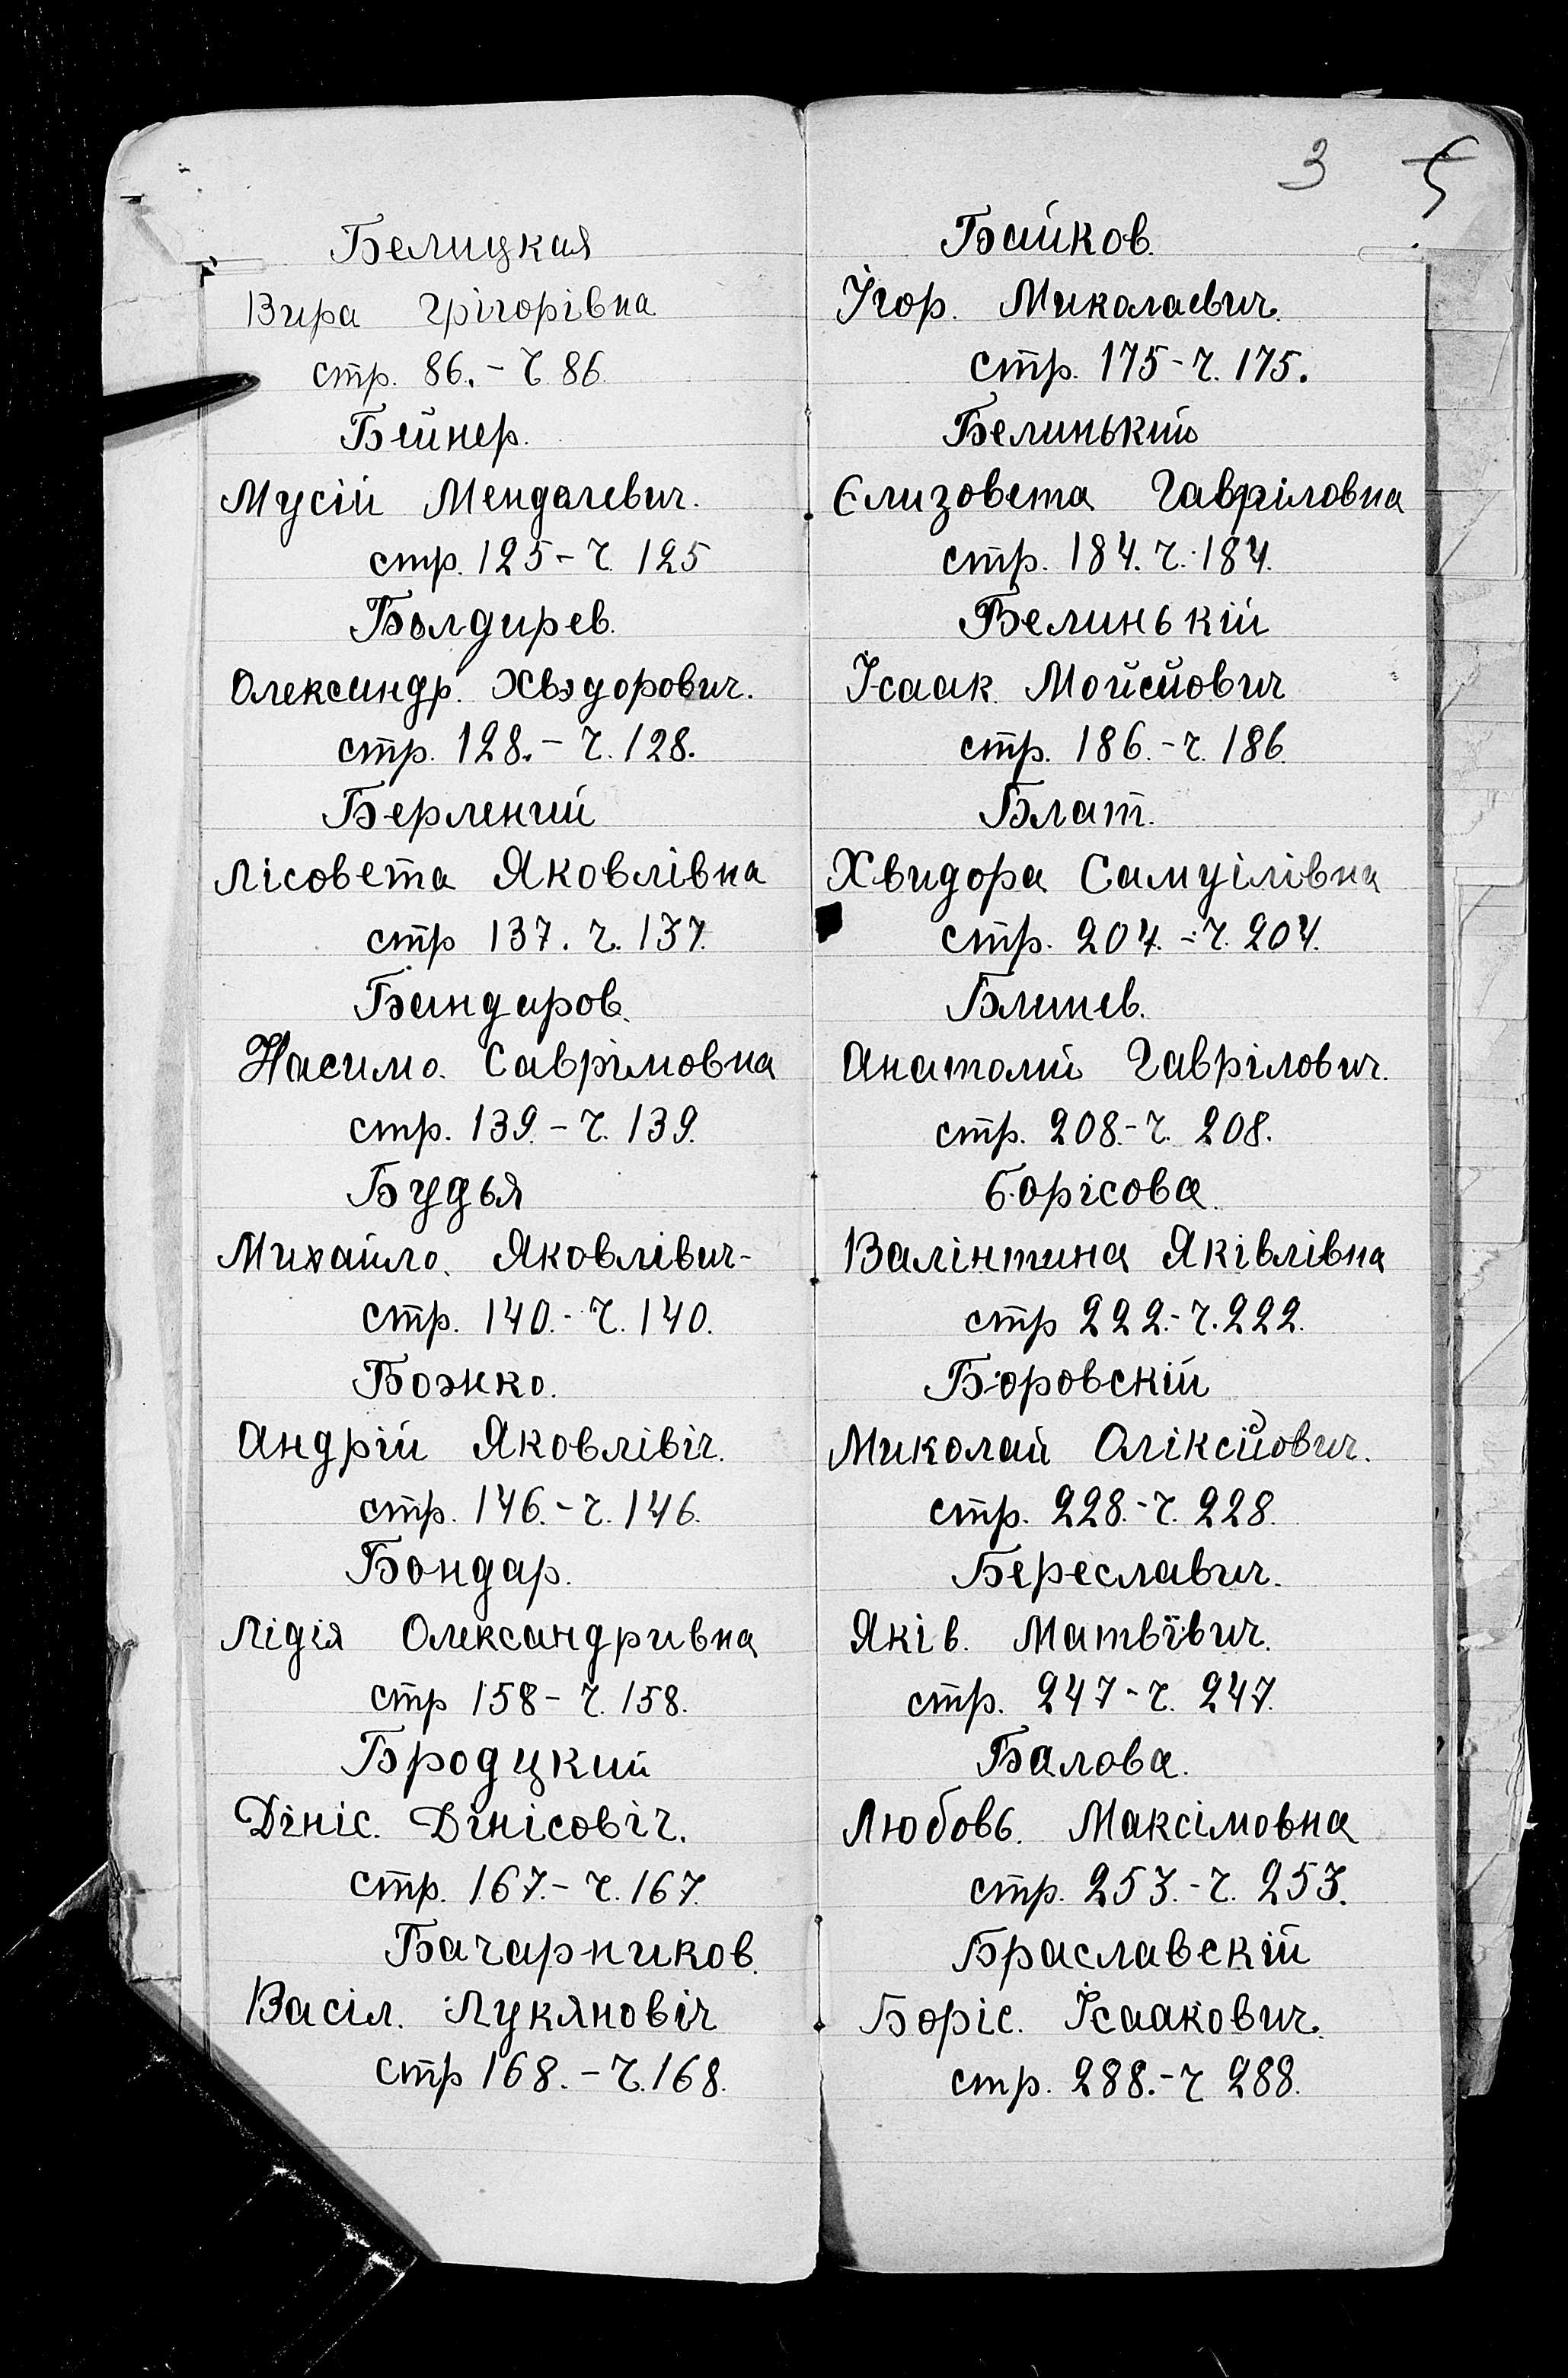 Белицкая
Вира Грігорівна
стр. 86. - ч. 86.
Бейнер.
Мусій Менделевич.
стр. 125 - ч. 125
Болдирев.
Олександр. Хвэдорович.
стр. 128. - ч. 128.
Берлений
Лісовета Яковлівна
стр 137. ч. 137.
Бандаров.
Саврімовна
стр. 139. - ч. 139.
Будья
Михайло. Яковлівич-
стр. 140. - ч. 140.
Божко.
Андрій Яковлівіч.
стр. 146. - ч. 146.
Бондар.
Лідія Олександривна
стр 158 - ч. 158.
Бродцкий
Дініс. Дінісовіч.
стр. 167. - ч. 167.
Бачарников.
Васіл. Лукяновіч
стр 168. - ч. 168.
3 5
Байков.
Ігор. Миколаевич.
стр. 175 - ч. 175.
Белинький
Єлизовета Гавріловна
стр. 184. ч. 184.
Белинькій
Ісаак Мойсйович
стр. 186. - ч. 186.
Блат.
Хвидора Самуілівна
стр. 204. - ч. 204.
Анатолий Гаврілович.
стр. 208. - ч. 208.
Борісова.
Валінтина Яківлівна
стр 222. - ч. 222.
Боровскій
Миколай Оліксійович.
стр. 228. - ч. 228.
Береславич.
Яків. Матвївич.
стр. 247 - ч. 247.
Балова.
Любовь. Максімовна
стр. 253. - ч. 253.
Браславскій
Боріс. Ісаакович.
стр. 288. - ч 288.